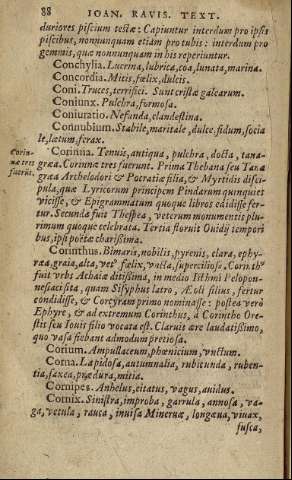 88 IOAN. RAVIS. TEXT.
duriores piscium testæ: Capiuntur interdum pro ipsis
piscibus, nonnunquam etiam pro tubis: interdum pro
gemmis, quæ nonnunquam in his reperiuntur.
Conchylia. Lucerna, lubrica, coa, lunata, marina.
Concordia. Mitis, fœlix, dulcis.
Coni. Truces, terrifici. Sunt cristæ galearum.
Coniunx. Pulchra, formosa.
Coniuratio. Nefanda, clandestina.
Connubium. Stabile, maritale, dulce, fidum, socia
le, lætum, ferax.
Corinna. Tenuis, antiqua, pulchra, docta, tana-
Corin-
næ tres
fuerūt.
græa. Corinnæ tres fuerunt. Prima Thebana seu Tana
græa Archelodori & Potratiæ filia, & Myrtidis disci-
pula, quæ Lyricorum principem Pindarum quinquies
vicisse, & Epigrammatum quoque libros edidisse fer-
tur. Secunda fuit Thespea, veterum monumentis plu-
rimum quoque celebrata. Tertia floruit Ouidij tempori
bus, ipsi poëtæ charissima.
Corinthus. Bimaris, nobilis, pyrenis, clara, ephy-
ræa, graia, alta, vetꝰ fœlix, vncta, superciliosa. Corīthꝰ
fuit vrbs Achaiæ ditissima, in medio Isthmi Pelopon-
nesiaci sita, quam Sisyphus latro, Æoli filius, fertur
condidisse, & Corcyram primo nominasse: postea verò
Ephyre, & ad extremum Corinthus, à Corintho Ore-
stis seu Iouis filio vocata est. Claruit ære laudatissimo,
quo vasa fiebant admodum pretiosa.
Corium. Ampullaceum, phœnicium, vnctum.
Corna. Lapidosa, autumnalia, rubicunda, ruben-
tia, saxea, prædura, mitia.
Cornipes. Anhelus, citatus, vagus, auidus.
Cornix. Sinistra, improba, garrula, annosa, va-
ga, vetula, rauca, inuisa Mineruæ, longæua, viuax,
fusca,